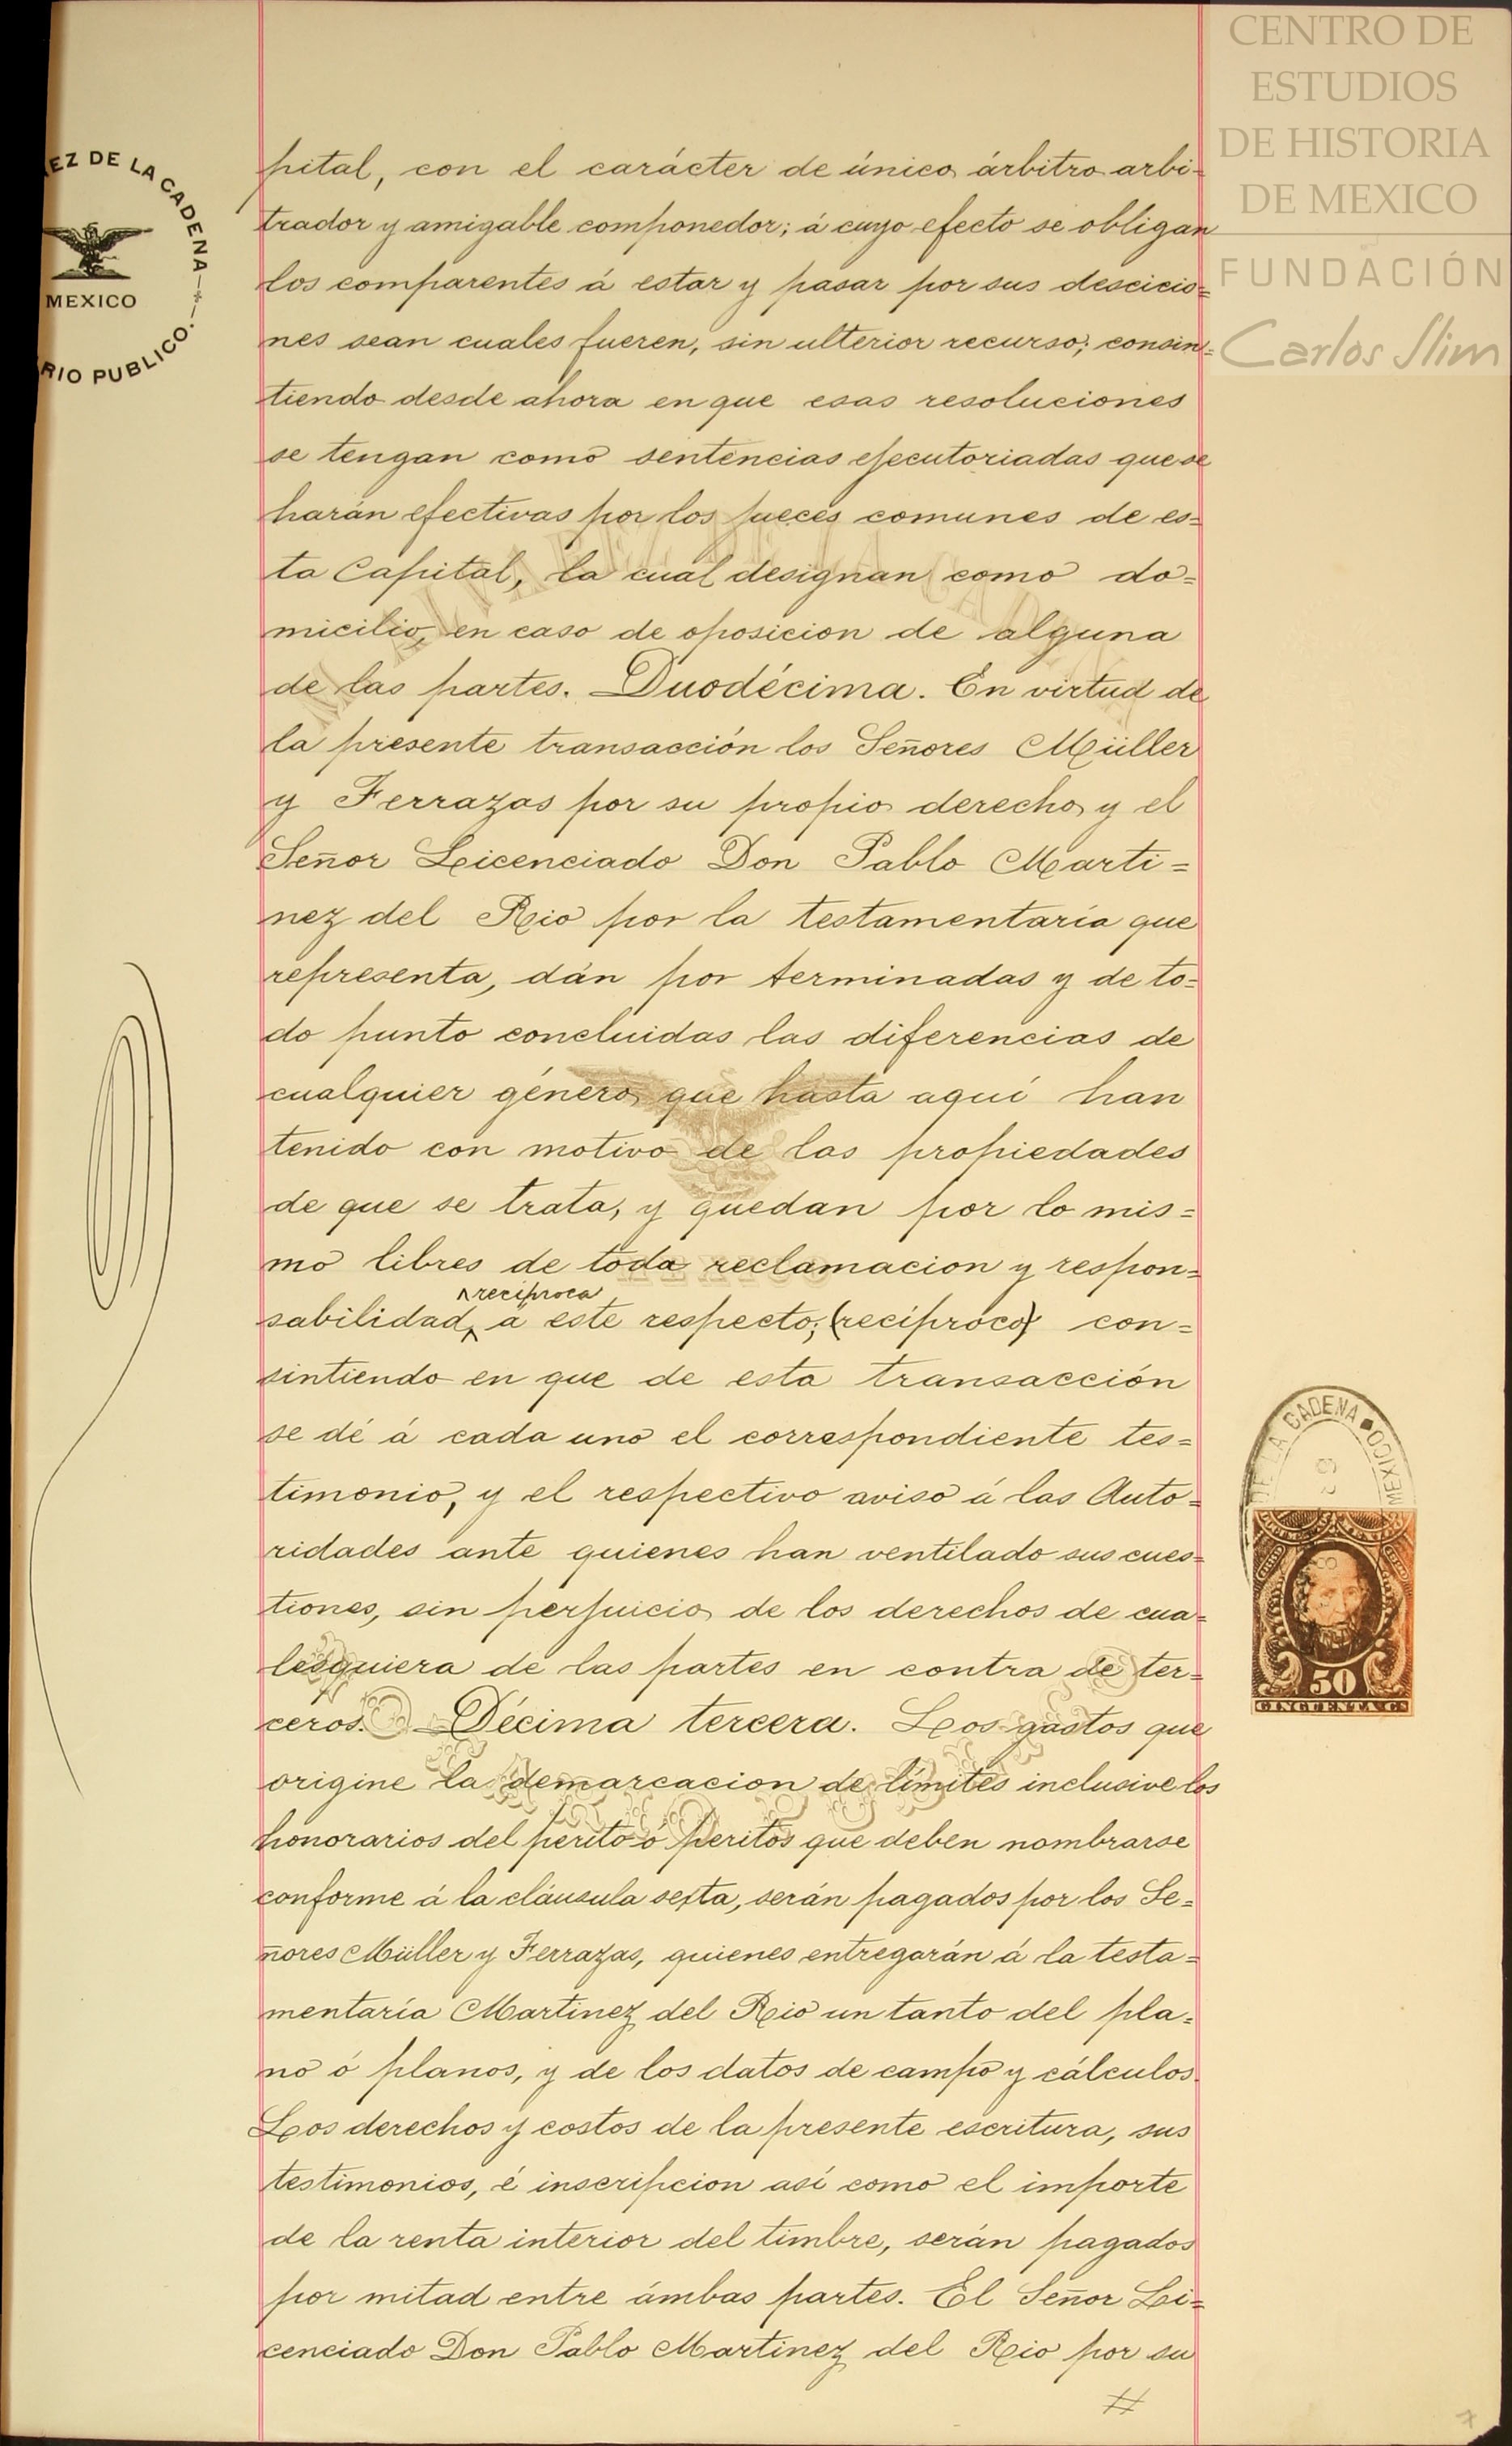 CENTRO DE
ESTUDIOS
DE HISTORIA
DE MEXICO
FUNDACIÓN
Carlos Slim
EZ DE LA CADENA
MEXICO
RIO PUBLICO.
pital, con el carácter de único árbitro arbi-
trador y amigable componedor; á cuyo efecto se obligan
los comparentes á estar y pasar por sus descicio=
nes sean cuales fueren, sin ulterior recurso; consin=
tiendo desde ahora en que esas resoluciones
se tengan como sentencias ejecutoriadas que se
harán efectivas por los jueces comunes de es=
ta Capital, la cual designan como do=
micilio, en caso de oposicion de alguna
de las partes. Duodécima. En virtud de
la presente transacción los Señores Müller
y Terrazas por su propio derecho y el
Señor Licenciado Don Pablo Marti=
nez del Rio por la testamentaría que
representa, dán por terminadas y de to=
do punto concluidas las diferencias de
cualquier género que hasta aquí han
tenido con motivo de las propiedades
de que se trata, y quedan por lo mis=
mo libres de toda reclamacion y respon=
recíproca
sabilidad, á este respecto; (recíproco) con=
sintiendo en que de esta transacción
se dé á cada uno el correspondiente tes=
timonio, y el respectivo aviso á las Auto=
ridades ante quienes han ventilado sus cues=
tiones, sin perjuicio de los derechos de cua=
lesquiera de las partes en contra de ter=
ceros. Décima tercera. Los gastos que
origine la demarcacion de límites inclusive los
honorarios del perito ó peritos que deben nombrarse
conforme á la cláusula sexta, serán pagados por los Se=
ñores Müller y Terrazas, quienes entregarán á la testa=
mentaría Martinez del Rio un tanto del pla=
no ó planos, y de los datos de campo y cálculos.
Los derechos y costos de la presente escritura, sus
testimonios, é inscripcion así como el importe
de la renta interior del timbre, serán pagados
por mitad entre ámbas partes. El Señor Li=
cenciado Don Pablo Martinez del Rio por su
DE LA CADENA MEXICO
50
CINCUENTA CS
7